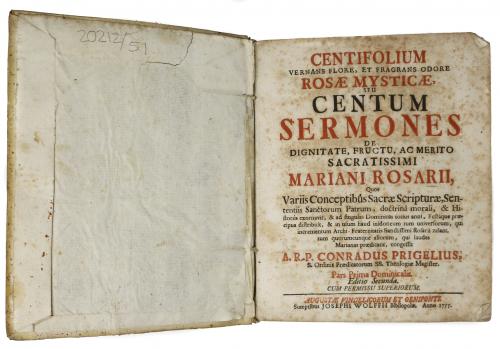 20212/51
CENTIFOLIUM
VERNANS FLORE, ET FRAGRANS ODORE
ROSÆ MYSTICÆ,
SEU
CENTUM
SERMONES
DE
DIGNITATE, FRUCTU, AC MERITO
SACRATISSIMI
MARIANI ROSARII,
Quos
Variis Conceptibûs Sacræ Scripturæ, Sen-
tentiis Sanctorum Patrum, doctrinâ morali, & Hi-
storiis exornavit, & ad singulas Dominicas totius anni, Festaque præ-
cipua distribuit, & in usum
incrementum Archi-Fraternitatis Sanctissimi Rosarii
tum quorumcunque aliorum, qui laudes
Marianas prædicant, congessit
A. R. P. CONRADUS PRIGELIUS,
S. Ordinis Prædicatorum SS. Theologiæ Magister.
Pars Prima Dominicalis.
Editio Secunda.
CUM PERMISSU SUPERIORUM.
AUGUSTÆ VINDELICORUM ET OENIPONTE
Sumptibus JOSEPHI WOLFFII Bibliopolæ. Anno